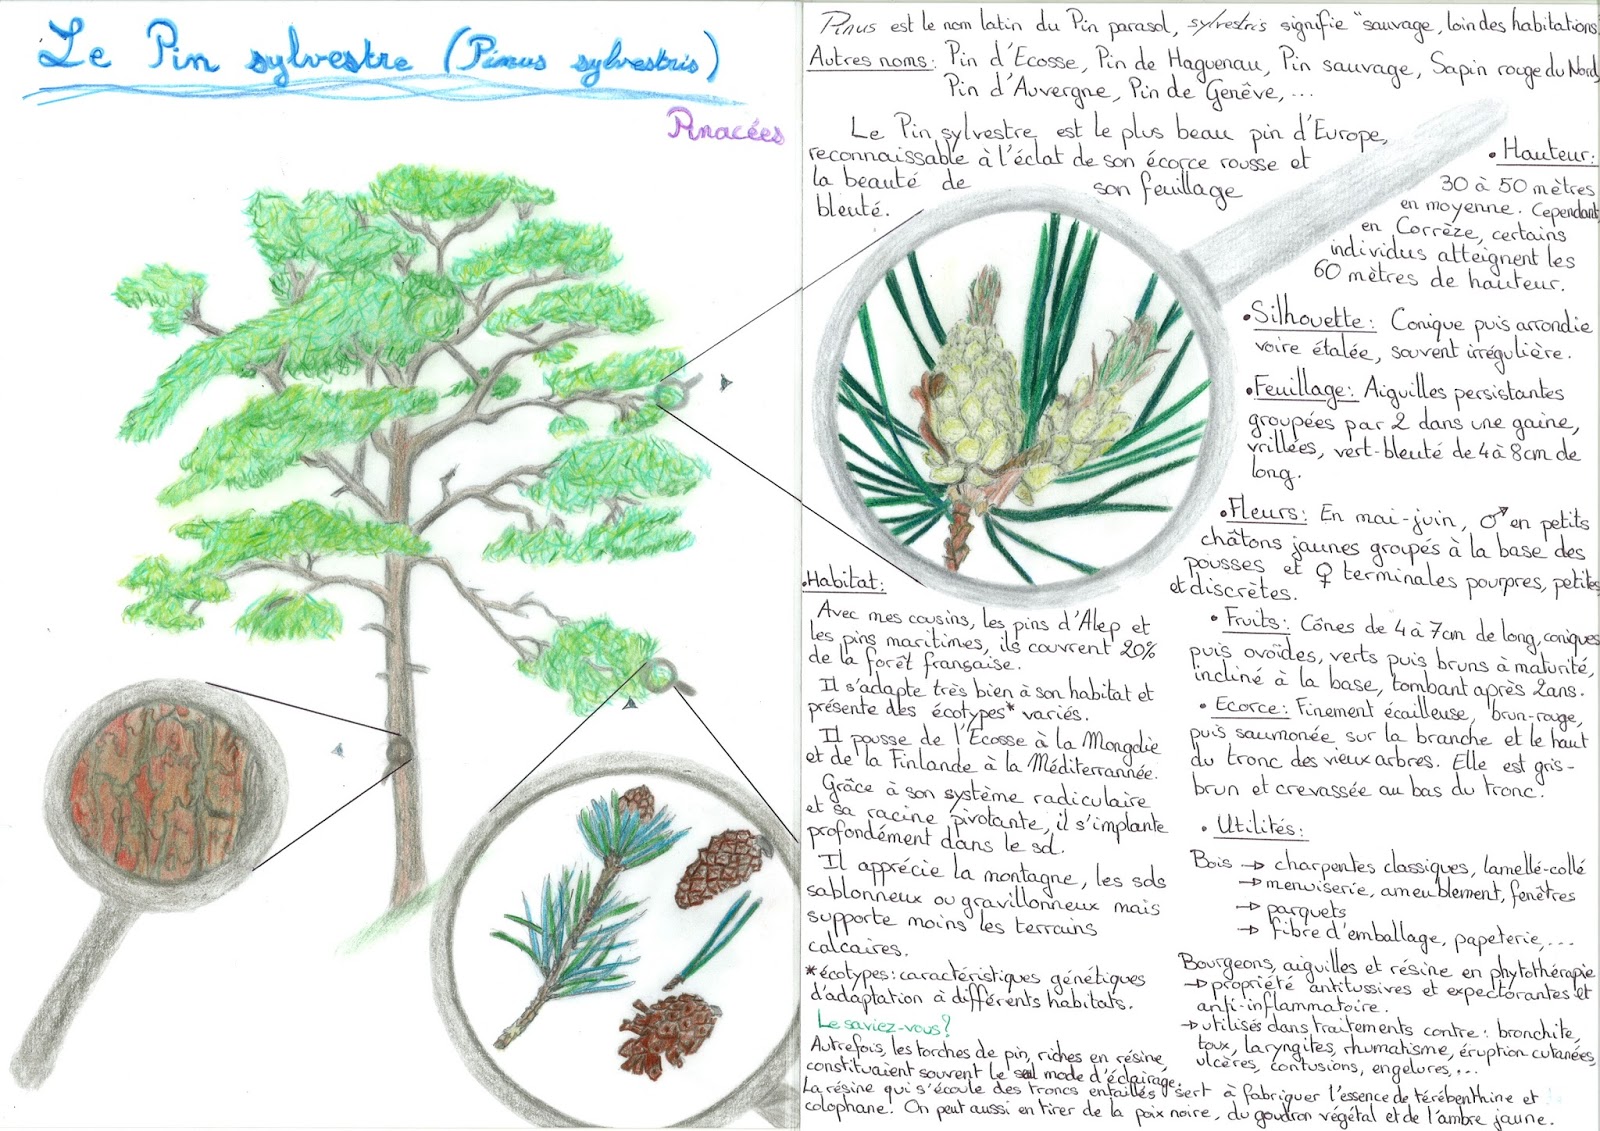 Le Pin sylvestre (Pinus sylvestris)
Pinacées
Pinus est le nom latin du Pin parasol, sylvestris signifie "sauvage, loin des habitations".
Autres noms: Pin d'Ecosse, Pin de Haguenau, Pin sauvage, Sapin rouge du Nord,
Pin d'Auvergne, Pin de Genêve, ...
Le Pin sylvestre est le plus beau pin d'Europe,
reconnaissable à l'éclat de son écorce rousse et
la beauté de son feuillage
bleuté.
• Hauteur:
30 à 50 mètres
en moyenne. Cependant,
en Corrèze, certains
individus atteignent les
60 mètres de hauteur.
• Silhouette: Conique puis arrondie
voire étalée, souvent irrégulière.
• Feuillage: Aiguilles persistantes
groupées par 2 dans une gaine,
vrillées, vert-bleuté de 4 à 8cm de
long.
• Fleurs: En mai-juin, ♂ en petits
châtons jaunes groupés à la base des
pousses et ♀ terminales pourpres, petites
et discrètes.
• Fruits: Cônes de 4 à 7cm de long, coniques
puis ovoïdes, verts puis bruns à maturité,
incliné à la base, tombant après 2ans.
• Ecorce: Finement écailleuse, brun-rouge,
puis saumonée sur la branche et le haut
du tronc des vieux arbres. Elle est gris-
brun et crevassée au bas du tronc.
• Utilités:
Bois → charpentes classiques, lamellé-collé
→ menuiserie, ameublement, fenêtres
→ parquets
→ fibre d'emballage, papeterie,...
Bourgeons, aiguilles et résine en phytothérapie
→ propriété antitussives et expectorantes et
anti-inflammatoire.
→ utilisés dans traitements contre: bronchite,
toux, laryngites, rhumatisme, éruption cutanées,
ulcères, contusions, engelures,...
• Habitat:
Avec mes cousins, les pins d'Alep et
les pins maritimes, ils couvrent 20%
de la forêt française.
Il s'adapte très bien à son habitat et
présente des écotypes* variés.
Il pousse de l'Ecosse à la Mongolie
et de la Finlande à la Méditerrannée.
Grâce à son système radiculaire
et sa racine pivotante, il s'implante
profondément dans le sol.
Il apprécie la montagne, les sols
sablonneux ou gravillonneux mais
supporte moins les terrains
calcaires.
*écotypes: caractéristiques génétiques
d'adaptation à différents habitats.
Le saviez-vous?
Autrefois, les torches de pin, riches en résine,
constituaient souvent le seul mode d'éclairage.
La résine qui s'écoule des troncs entaillés sert à fabriquer l'essence de térébenthine et
colophane. On peut aussi en tirer de la poix noire, du goudron végétal et de l'ambre jaune.